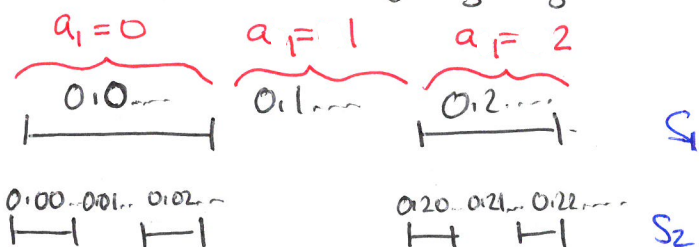 a₁ = 0 a₁ = 1 a₁ = 2
0.0.... 0.1.... 0.2.... S₁
0.00.. 0.01.. 0.02... 0.20 0.21... 0.22..... S₂